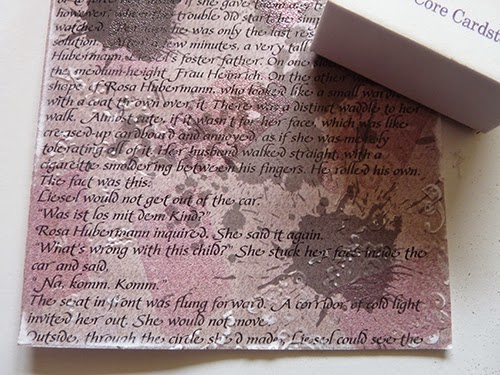 if she gave them a
however, when the trouble did start he sim
to watch. Perhaps he was only the last res
solution. After a few minutes, a very tall
Hubermann. Liesel's foster father. On one
the medium-height Frau Heinrich. On the other
shape of Rosa Hubermann, who looked like a small ward
with a coat thrown over it. There was a distinct waddle to her
walk. Almost cute, if it wasn't for her face, which was like
creased-up cardboard and annoyed, as if she was merely
tolerating all of it. Her husband walked straight, with a
cigarette smoldering between his fingers. He rolled his own.
The fact was this:
Liesel would not get out of the car.
"Was ist los mit dem Kind?"
Rosa Hubermann inquired. She said it again.
"What's wrong with this child?" She stuck her face inside the
car and said,
"Na, komm. Komm."
The seat in front was flung forward. A corridor of cold light
invited her out. She would not move.
Outside, through the circle she'd made, Liesel could see the
Core Cardst